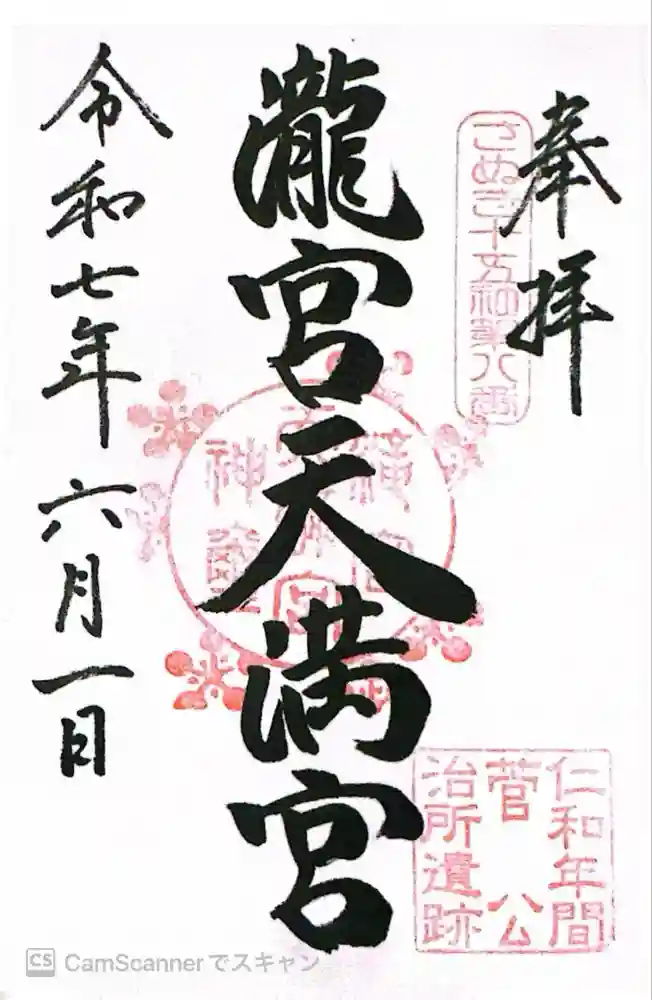 奉拝
さぬき十五社第八番
瀧宮天満宮
仁和年間
菅公
治所遺跡
令和七年六月一日
CS CamScannerでスキャン